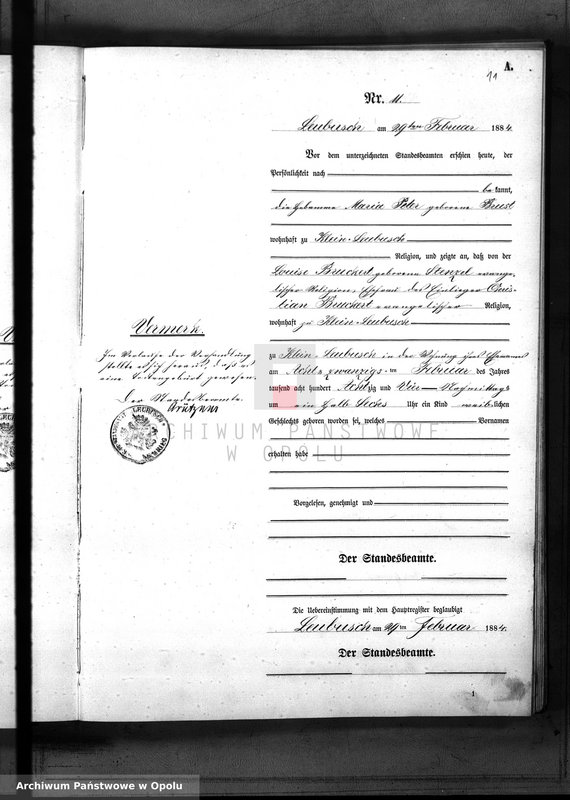 A.
11
Nr. 11.
Leubusch am 29ten Februar 1884.
Vor dem unterzeichneten Standesbeamten erschien heute, der
Persönlichkeit nach
be kannt,
die Hebamme Maria Peter geborene
wohnhaft zu Klein-Leubusch
Religion, und zeigte an, daß von der
Louise Bruchert geborene Stenzel evange-
lischer Religion, Ehefrau des Einlieger
Bruchert evangelischer Religion,
wohnhaft zu Klein-Leubusch
zu Klein-Leubusch in der Wohnung ihres Ehemannes
am Acht zwanzigs-ten Februar des Jahres
tausend acht hundert Achtzig und Vier Nachmittags
um ein halb Sechs Uhr ein Kind weiblichen
Geschlechts geboren worden sei, welches Vornamen
erhalten habe
Vorgelesen, genehmigt und
Der Standesbeamte.
Die Uebereinstimmung mit dem Hauptregister beglaubigt
Leubusch am 29ten Februar 1884.
Der Standesbeamte.
1
Vermerk.
Im Verlaufe der Verhandlung
stellte es sich heraus, daß es
eine gewesen.
Der Standesbeamte
ARCHIWUM PAŃSTWOWE
W OPOLU
Archiwum Państwowe w Opolu